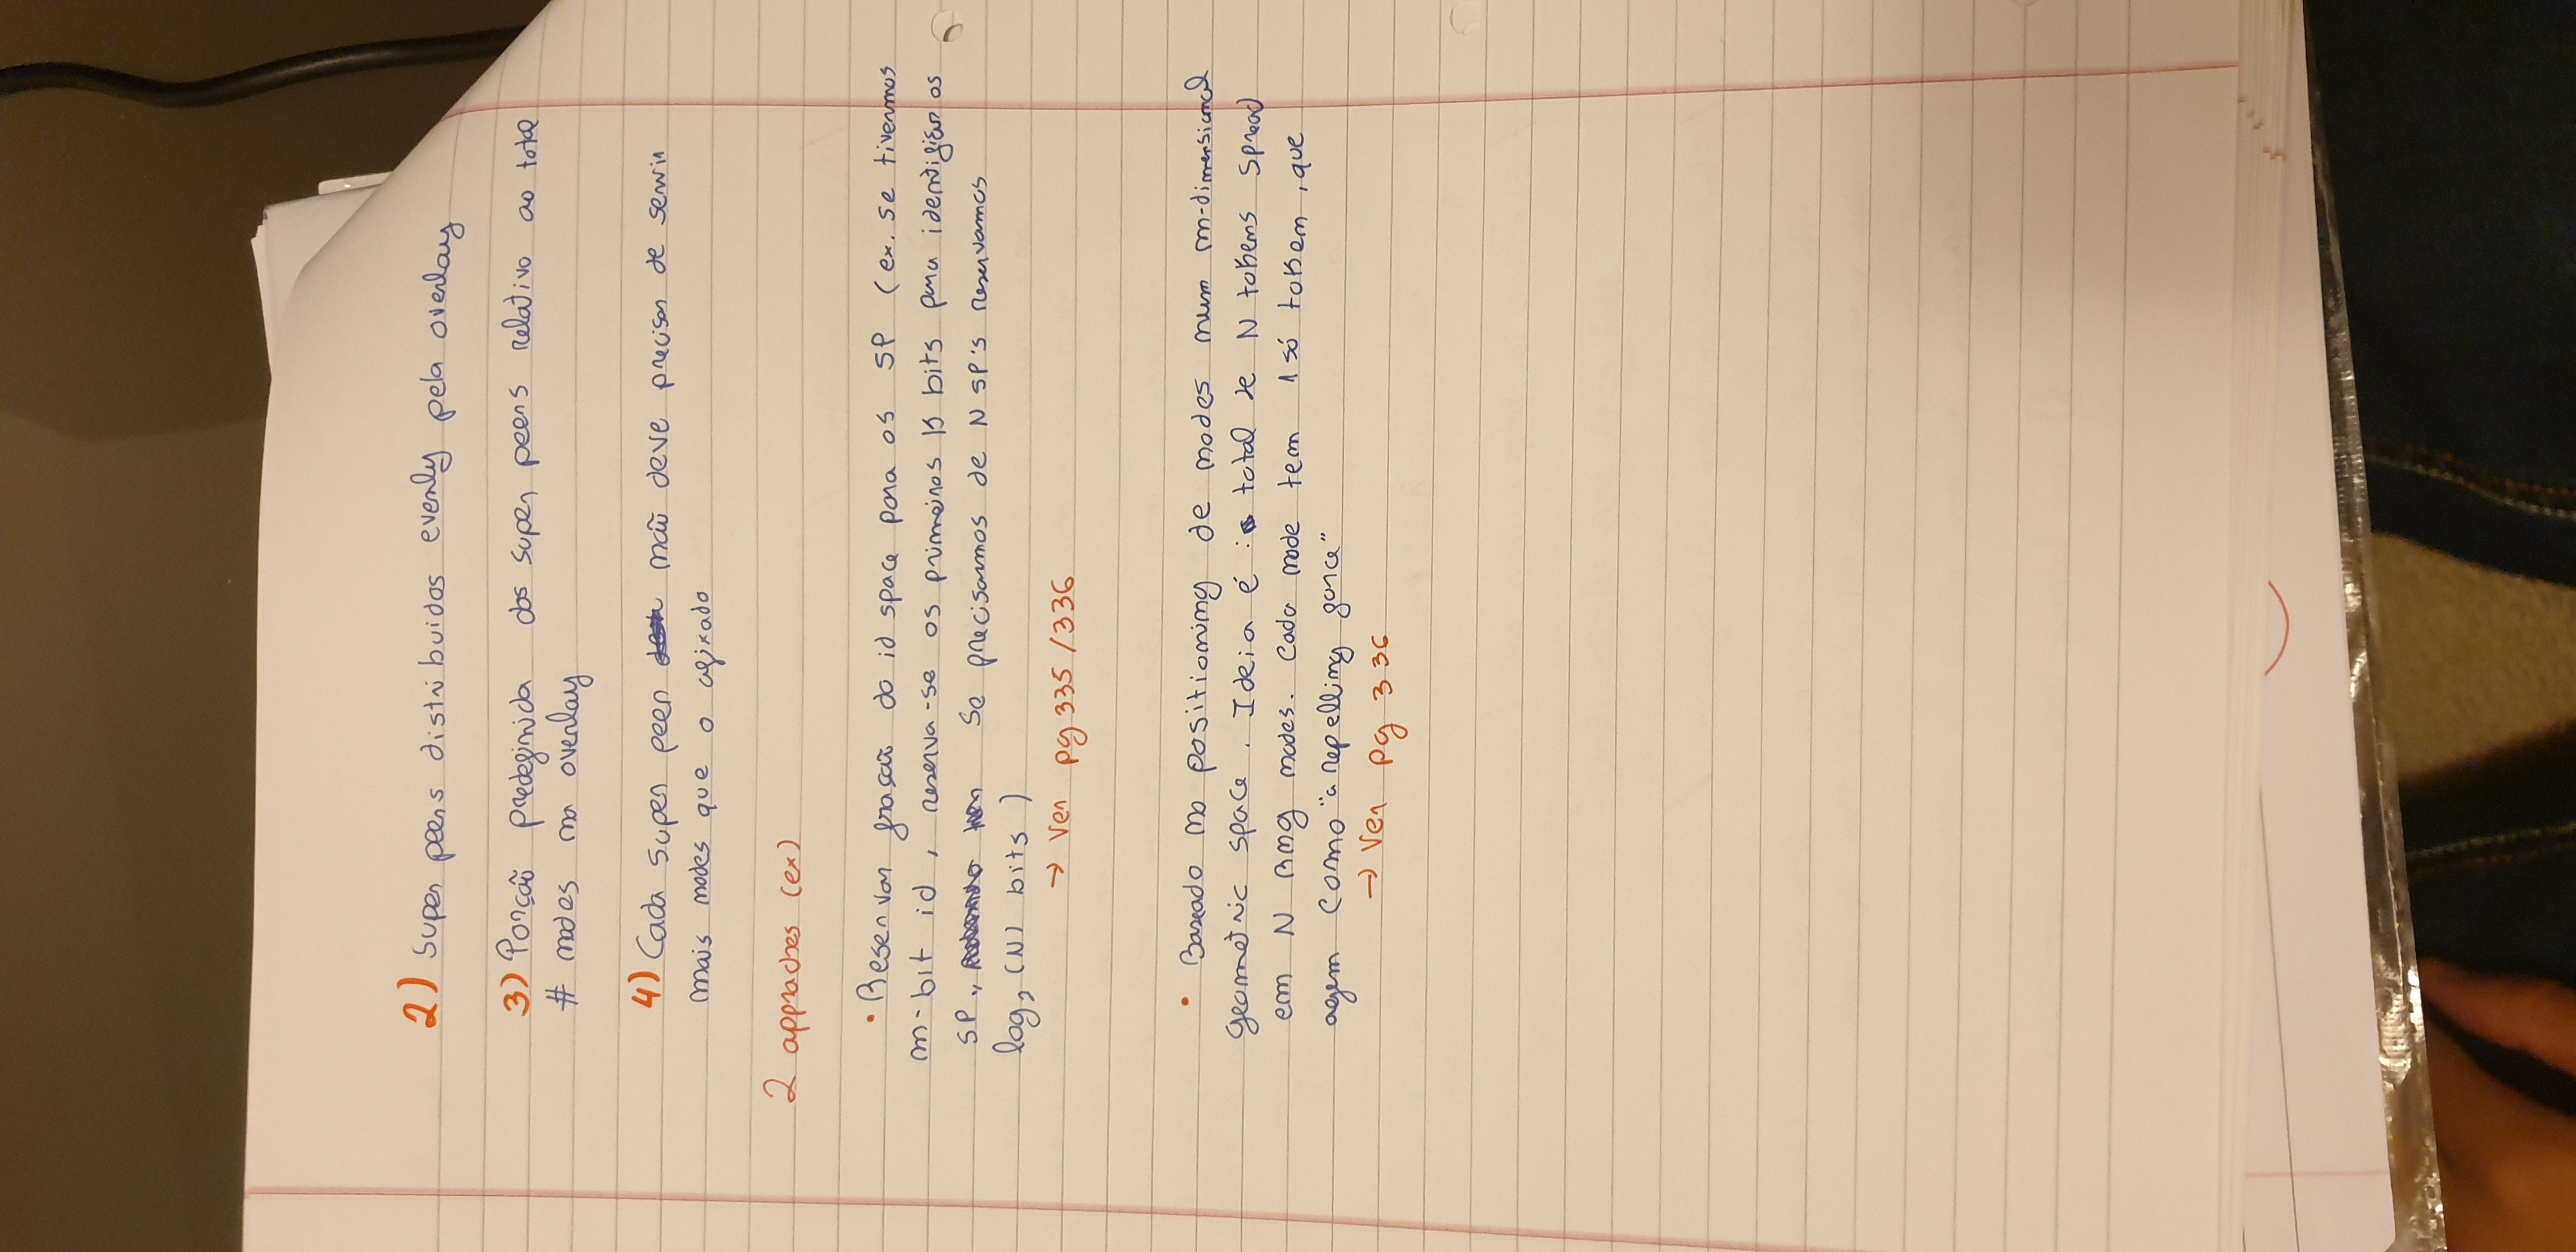 2) Super peers distribuidos evenly pela overlay
3) Porção predefinida dos super peers relativo ao total
# nodes na overlay
4) Cada super peer não deve precisar de servir
mais nodes que o afixado
2 appraches (ex)
• Reservar fração do id space para os SP (ex. se tivermos
m-bit id, reserva-se os primeiros K bits para identificar os
SP. Se precisarmos de N SP's reservamos
log₂(N) bits)
→ Ver pg 335/336
• Baseado no positioning de nodes num m-dimensional
geometric space. Ideia é: total de N tokens spread
em N Rmg nodes. Cada node tem 1 só token, que
agem como "a repelling force"
→ Ver pg 336